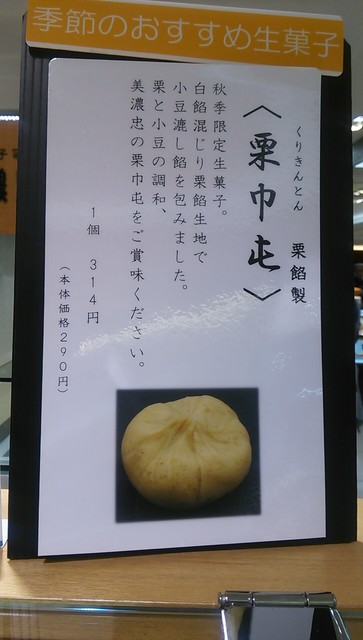 季節のおすすめ生菓子
くりきんとん
〈栗巾屯〉
栗餡製
秋季限定生菓子。
白餡混じり栗餡生地で
小豆漉し餡を包みました。
栗と小豆の調和、
美濃忠の栗巾屯をご賞味ください。
1個 314円
(本体価格290円)